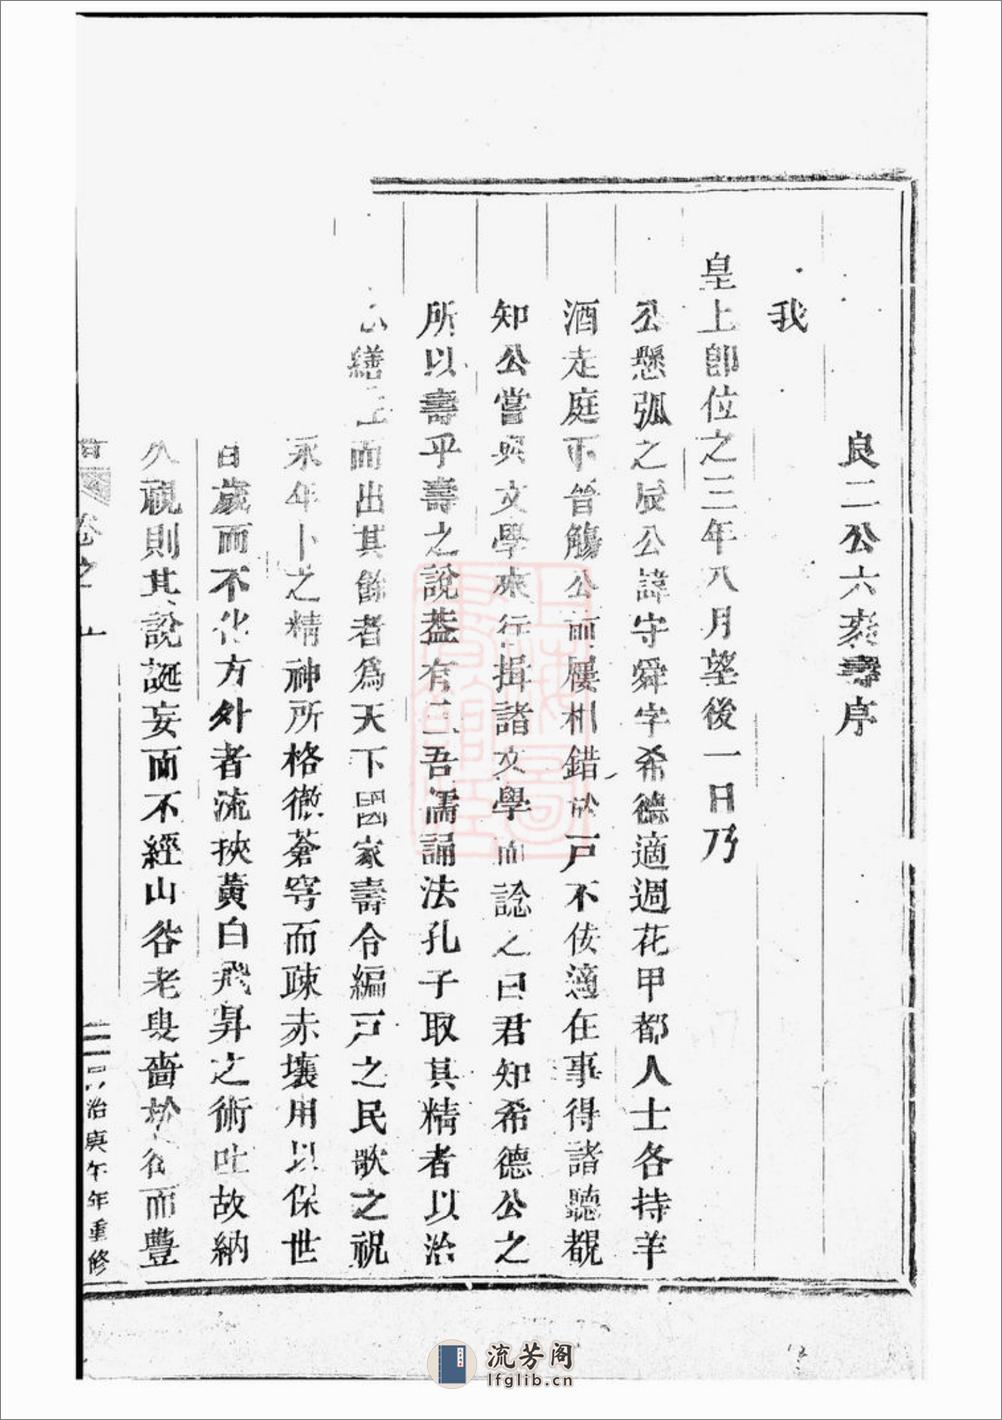 良二公六袠壽序
我
皇上卽位之三年八月望後一日乃
公懸弧之辰公諱守舜字希德適週花甲都人士各持羊
酒走庭下晉觴公前屨相錯於戸不佞適在事得諸聽覩
知公嘗與文學來行揖諸文學而諗之曰君知希德公之
所以壽乎壽之說葢有三吾儒誦法孔子取其精者以治
繕生而出其餘者爲天下國家壽令編戸之民歌之祝
永年卜之精神所格徹蒼穹而疎赤壤用以保世
百歲而不化方外者流挾黃白飛昇之術吐故納
久視則其說誕妄而不經山谷老叟嗇於後而豐
卷之一
二
同治庚午年重修
流芳阁
lfglib.cn